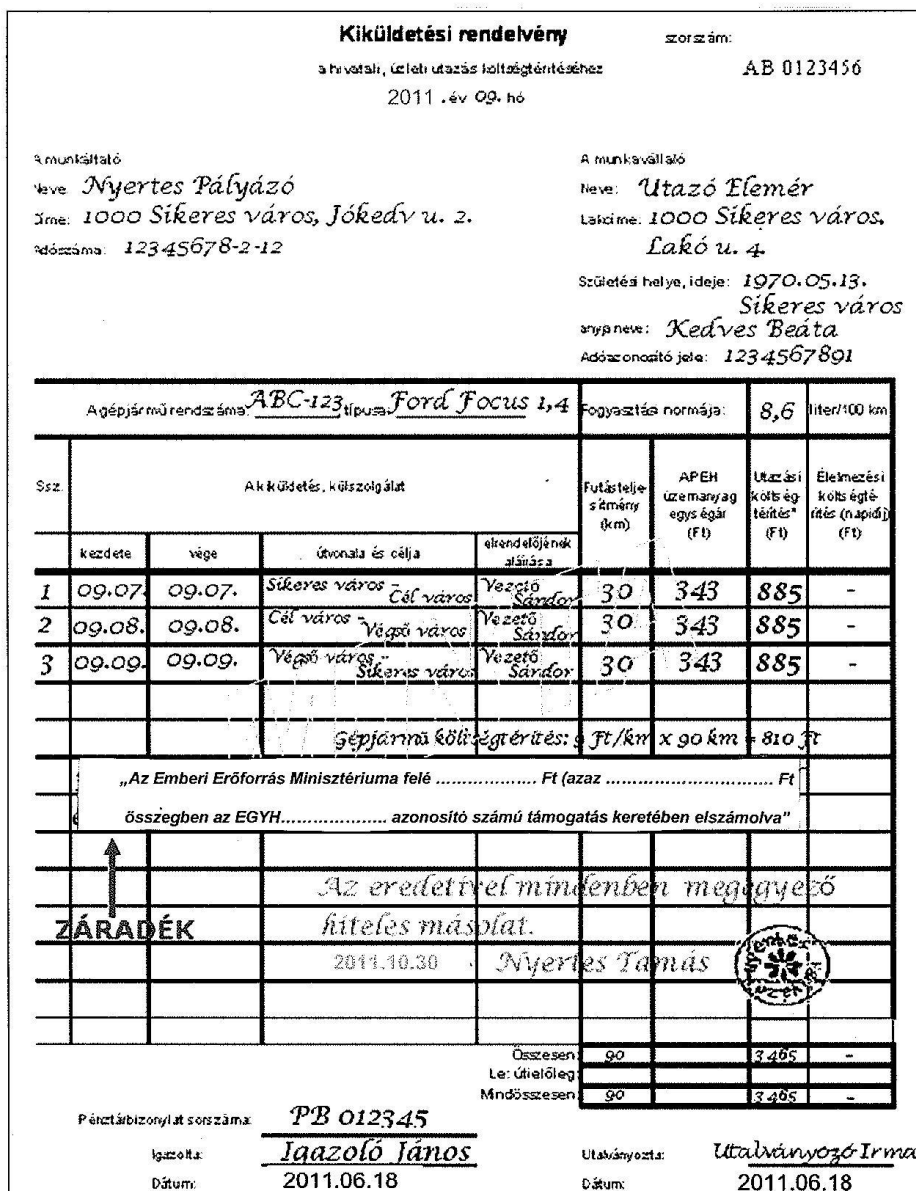 Kiküldetési rendelvény
szorszám:
a hivatali, üzleti utazás költségtérítéséhez
AB 0123456
2011 .év 09. hó
A munkáltató
Neve Nyertes Pályázó
Címe: 1000 Sikeres város, Jókedv u. 2.
Adószáma: 12345678-2-12
A munkavállaló
Neve: Utazó Elemér
Lakcíme: 1000 Sikeres város,
Lakó u. 4.
Születési helye, ideje: 1970.05.13.
Sikeres város
anyja neve: Kedves Beáta
Adóazonosító jele: 1234567891
A gépjármű rendszáma: ABC-123 típusa: Ford Focus 1,4 Fogyasztási normája: 8,6 liter/100 km
Ssz. A kiküldetés, külszolgálat Futástelje-sítmény (km) APEH üzemanyag egységár (Ft) Utazási költség-térítés* (Ft) Élelmezési költségté-rítés (napidíj) (Ft)
kezdete vége útvonala és célja elrendelőjének aláírása
1 09.07. 09.07. Sikeres város - Cél város Vezető Sándor 30 343 885 -
2 09.08. 09.08. Cél város - Végső város Vezető Sándor 30 343 885 -
3 09.09. 09.09. Végső város - Sikeres város Vezető Sándor 30 343 885 -
Gépjármű költségtérítés: 9 Ft/km x 90 km = 810 Ft
„Az Emberi Erőforrás Minisztériuma felé .................. Ft (azaz ............................ Ft
összegben az EGYH.................... azonosító számú támogatás keretében elszámolva"
ZÁRADÉK
Az eredetivel mindenben megegyező
hiteles másolat.
2011.10.30 Nyertes Tamás
Összesen: 90 3465 -
Le: útielőleg:
Mindösszesen: 90 3465 -
Pénztárbizonylat sorszáma: PB 012345
Igazolta: Igazoló János
Utalványozta: Utalványozó Irma
Dátum: 2011.06.18
Dátum: 2011.06.18